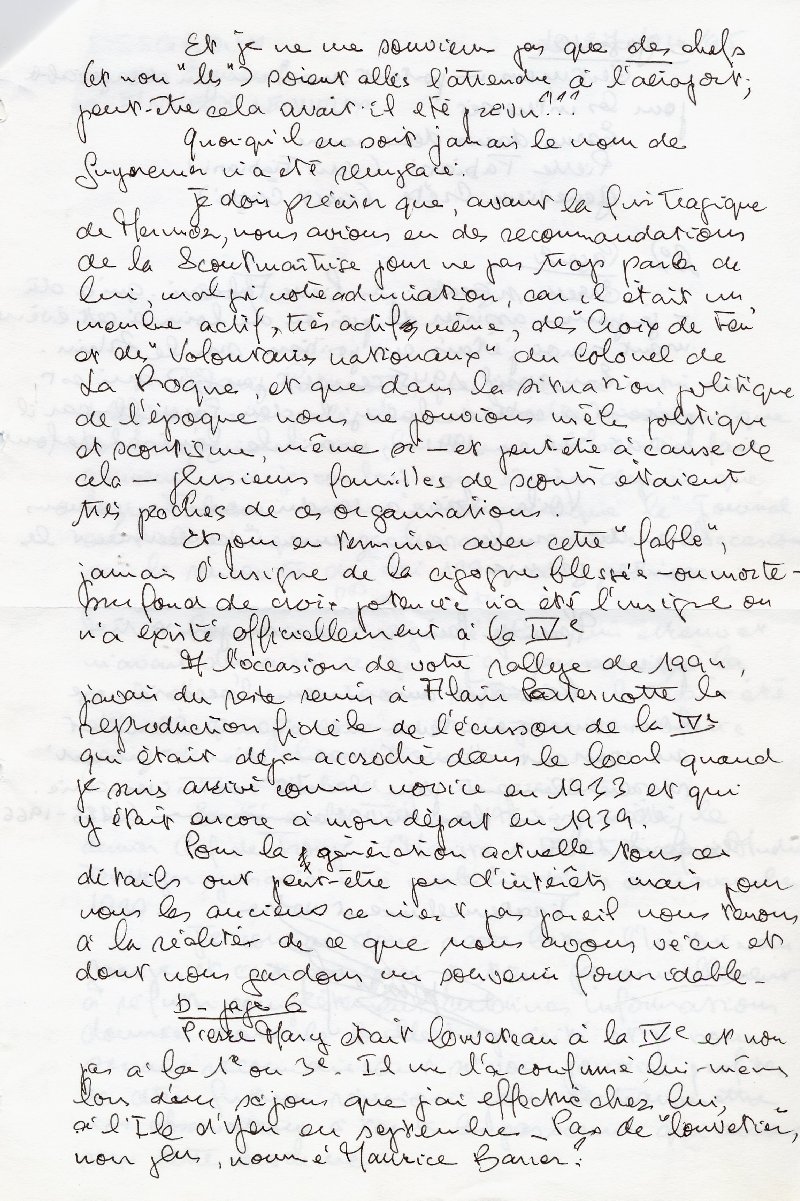 Et je ne me souviens pas que des chefs
(et non "les") soient allés l'attendre à l'aéroport;
peut-être cela avait-il été prévu!!!
Quoiqu'il en soit jamais le nom de
Guynemer n'a été remplacé.
Je dois préciser que, avant la fin tragique
de Mermoz, nous avions eu des recommandations
de la Scoutmaîtrise pour ne pas trop parler de
lui, malgré notre admiration, car il était un
membre actif, très actif même, des "Croix de Feu"
et des "Volontaires nationaux" du Colonel de
La Rocque, et que dans la situation politique
de l'époque nous ne pouvions mêler politique
et scoutisme, même si — et peut-être à cause de
cela — plusieurs familles de scouts étaient
très proches de ces organisations.
Et pour en terminer avec cette "fable",
jamais l'insigne de la cigogne blessée - ou morte -
sur fond de croix potencée n'a été l'insigne ou
n'a existé officiellement à la IVe
A l'occasion de votre rallye de 1994,
j'avais du reste remis à Alain Paternotte la
reproduction fidèle de l'écusson de la IVe
qui était déjà accroché dans le local quand
je suis arrivé comme novice en 1933 et qui
y était encore à mon départ en 1939.
Pour la génération actuelle tous ces
détails ont peut-être peu d'intérêts mais pour
nous les anciens ce n'est pas pareil nous tenons
à la réalité de ce que nous avons vécu et
dont nous gardons un souvenir formidable.
D - page 6
Pierre Mary était louveteau à la IVe et non
pas à la 1e ou 3e. Il me l'a confirmé lui même
lors d'un séjour que j'ai effectué chez lui,
à l'Ile d'Yeu en septembre - Pas de "louvetier",
non plus, nommé Maurice Barrier.